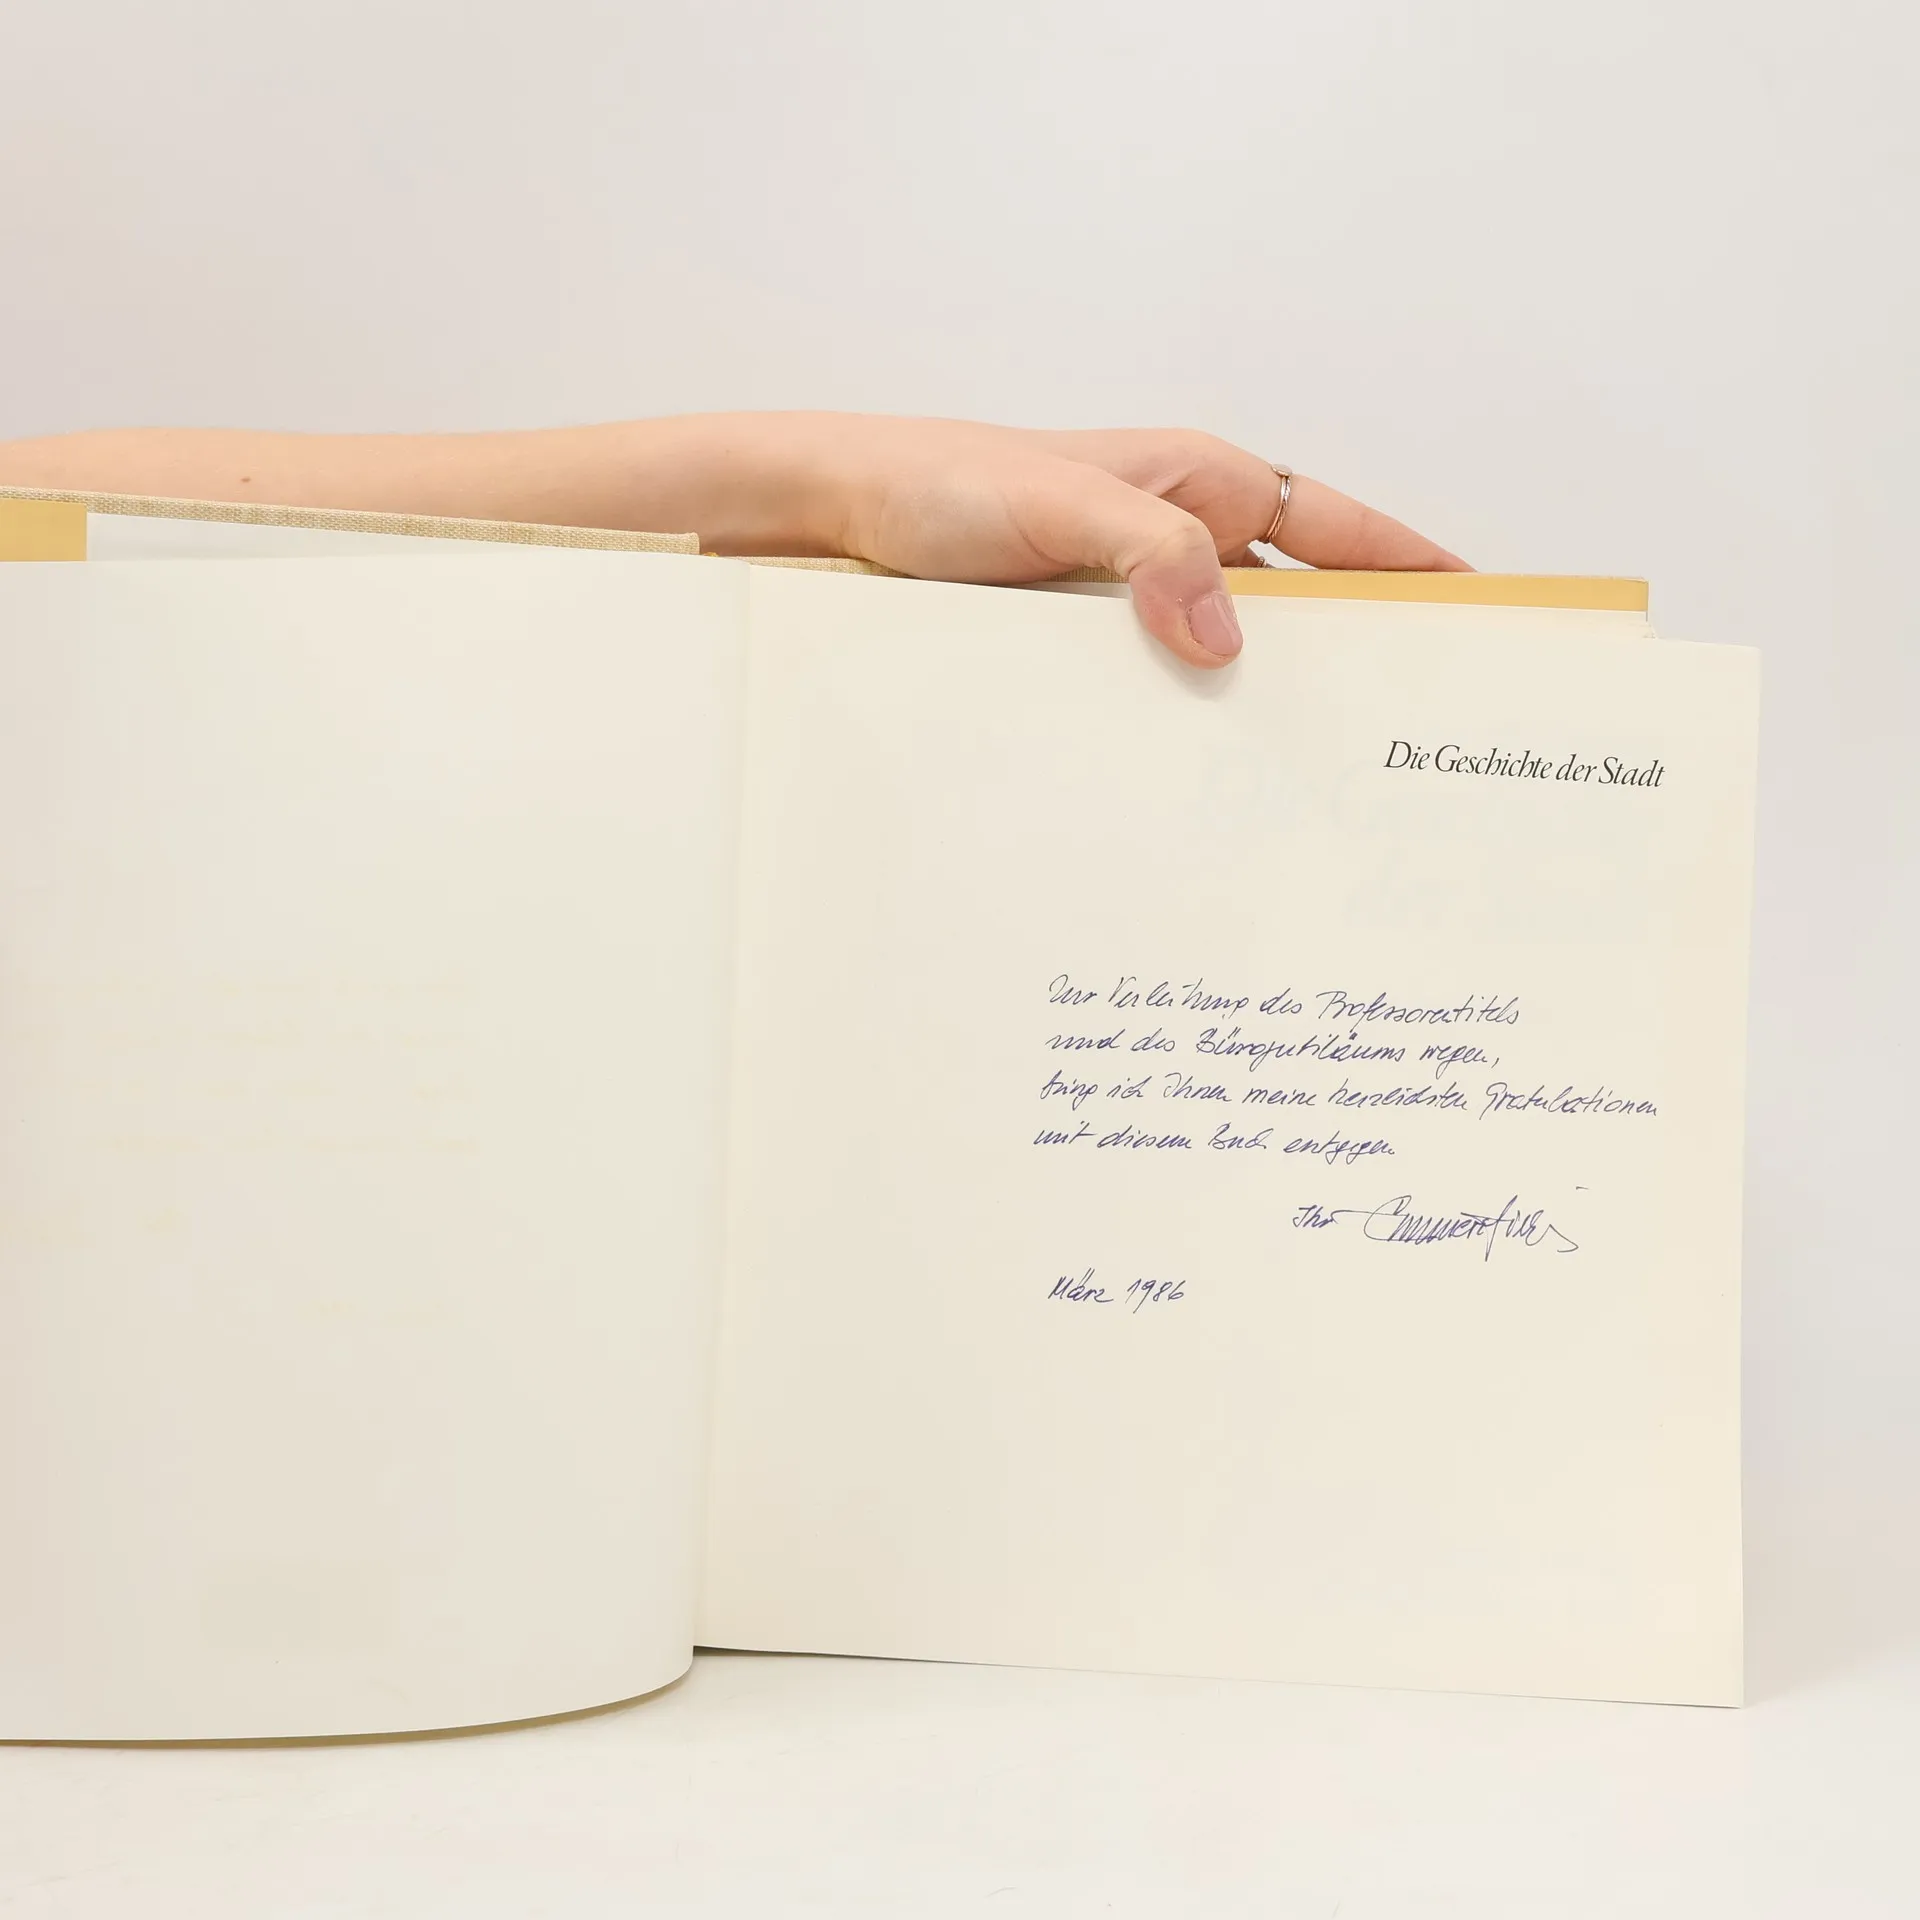 Die Geschichte der Stadt
Zur Verleihung des Professorentitels
und des Bürojubiläums wegen,
bring ich Ihnen meine herzlichsten Gratulationen
mit diesem Buch entgegen
Ihr
März 1986